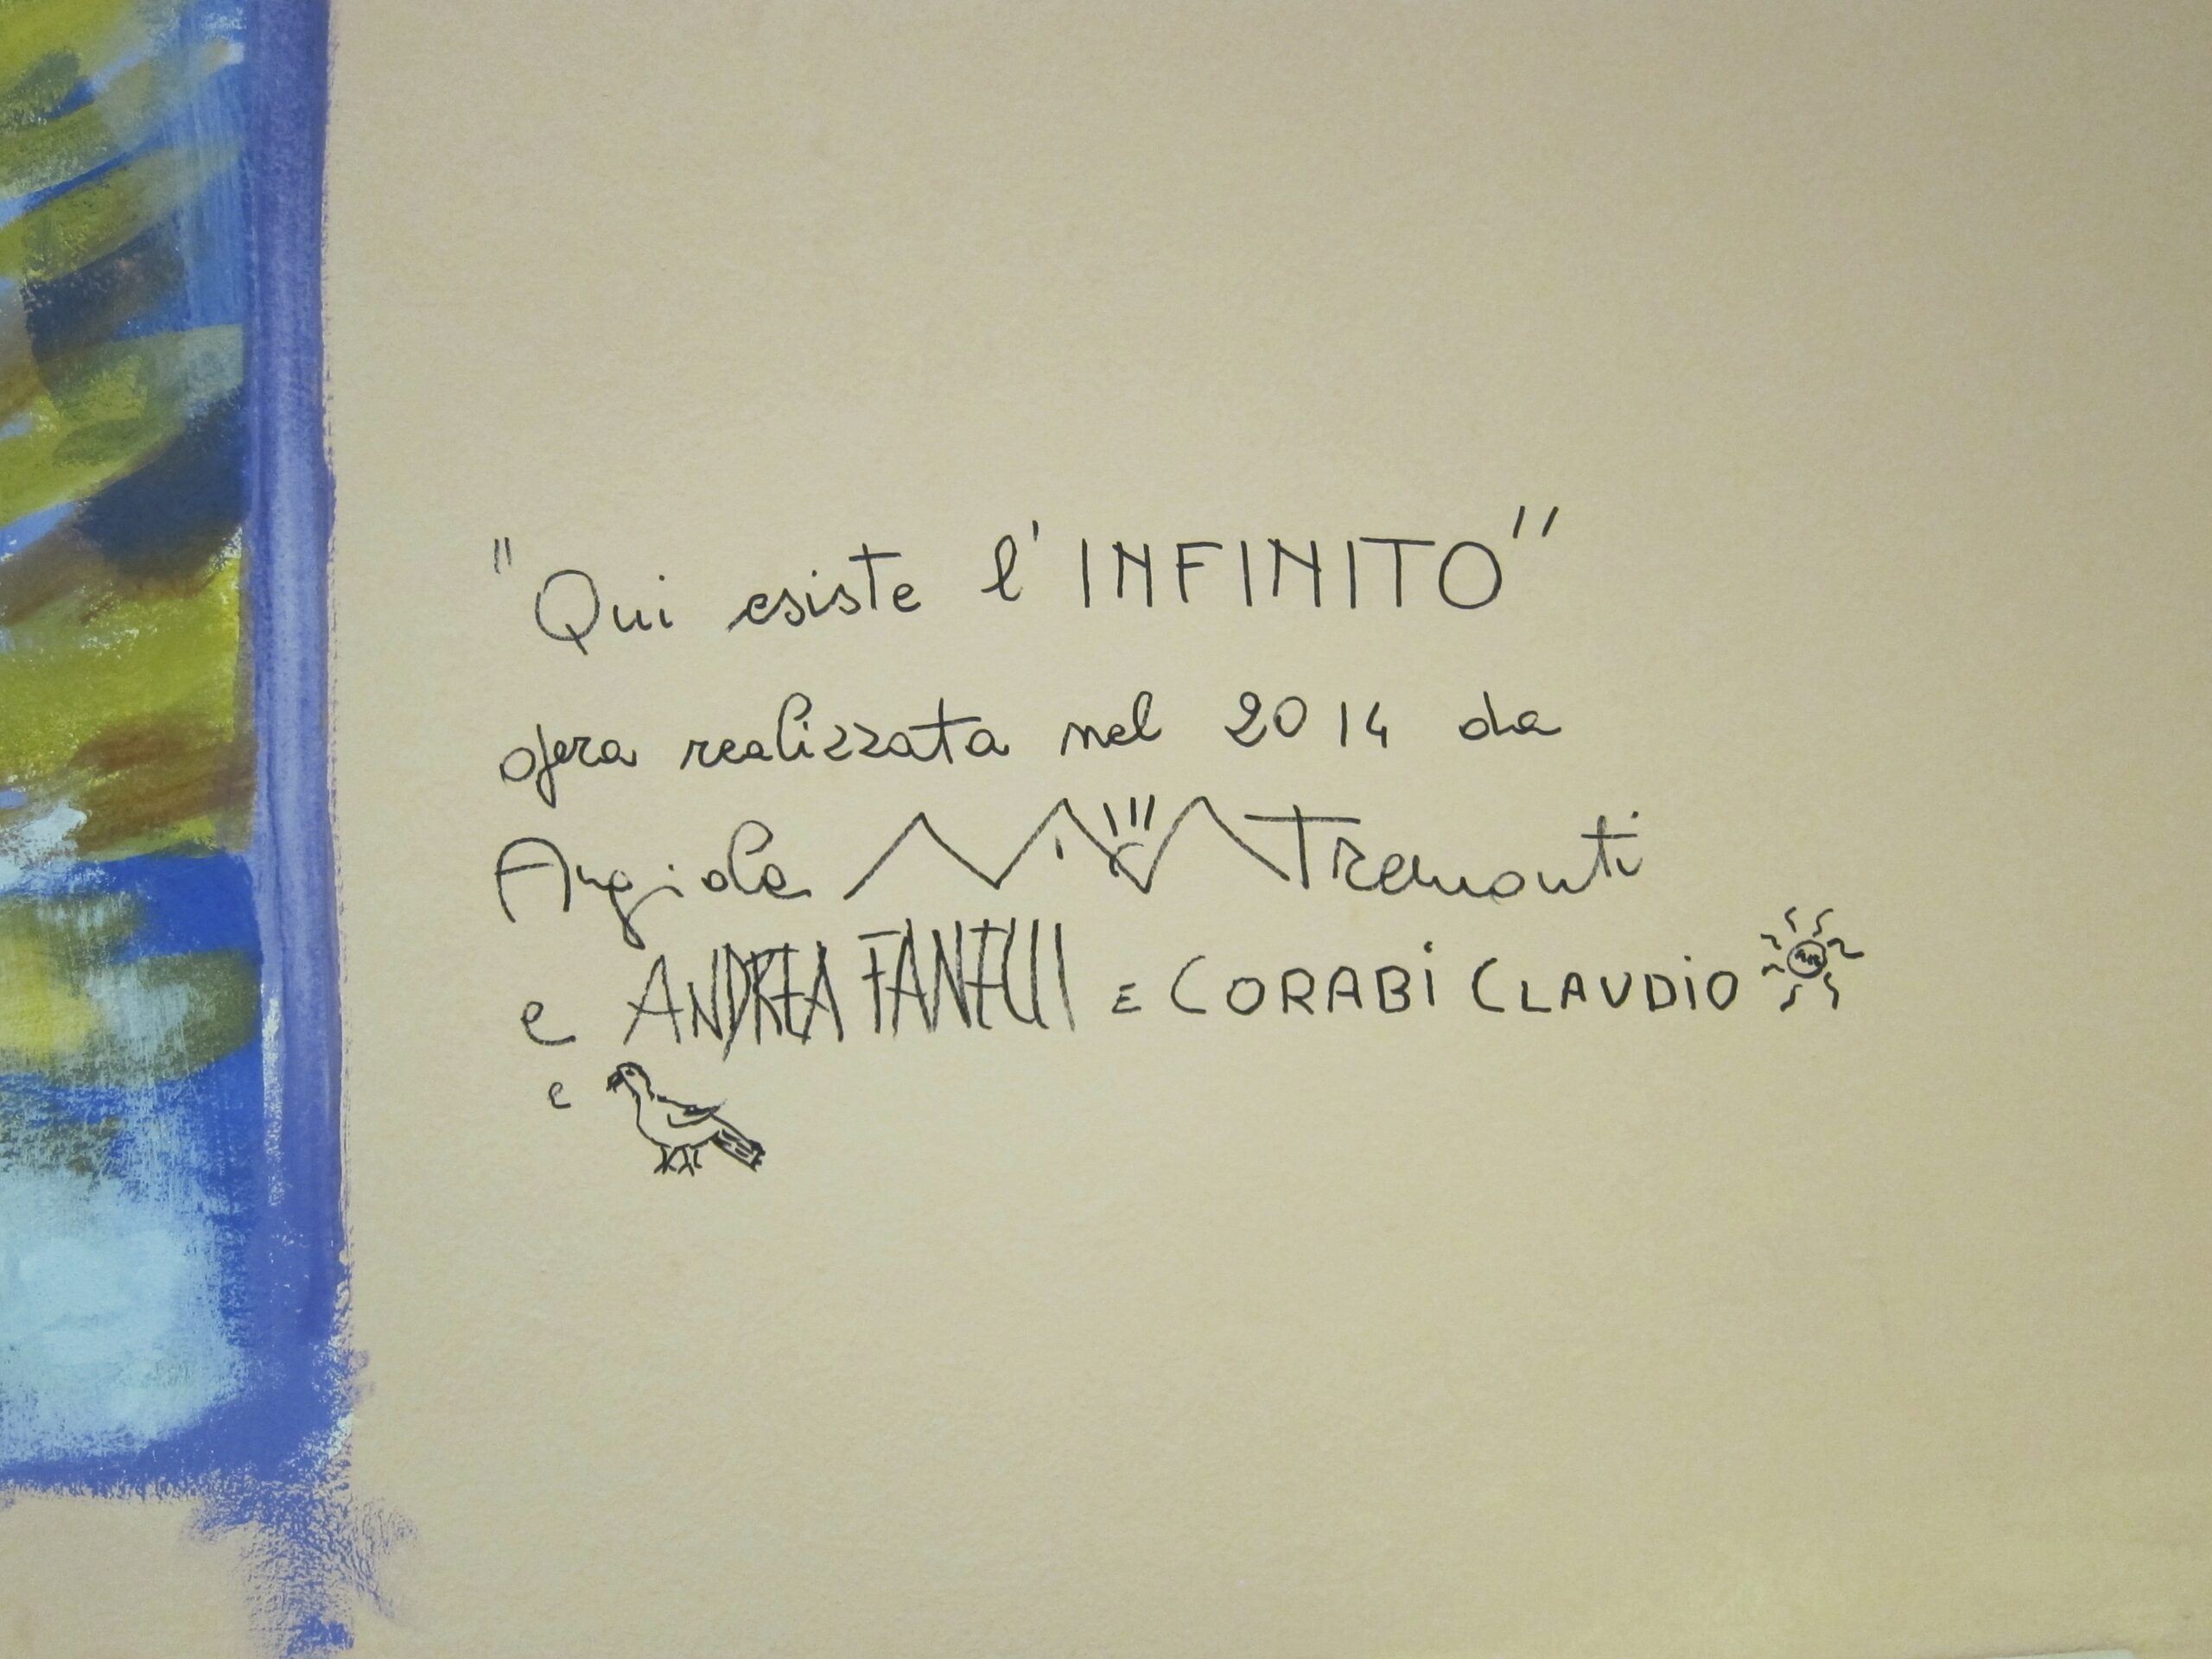 "Qui esiste l'INFINITO"
opera realizzata nel 2014 da
Angiola Tremonti
e ANDREA FANELLI E CORABI CLAUDIO
e